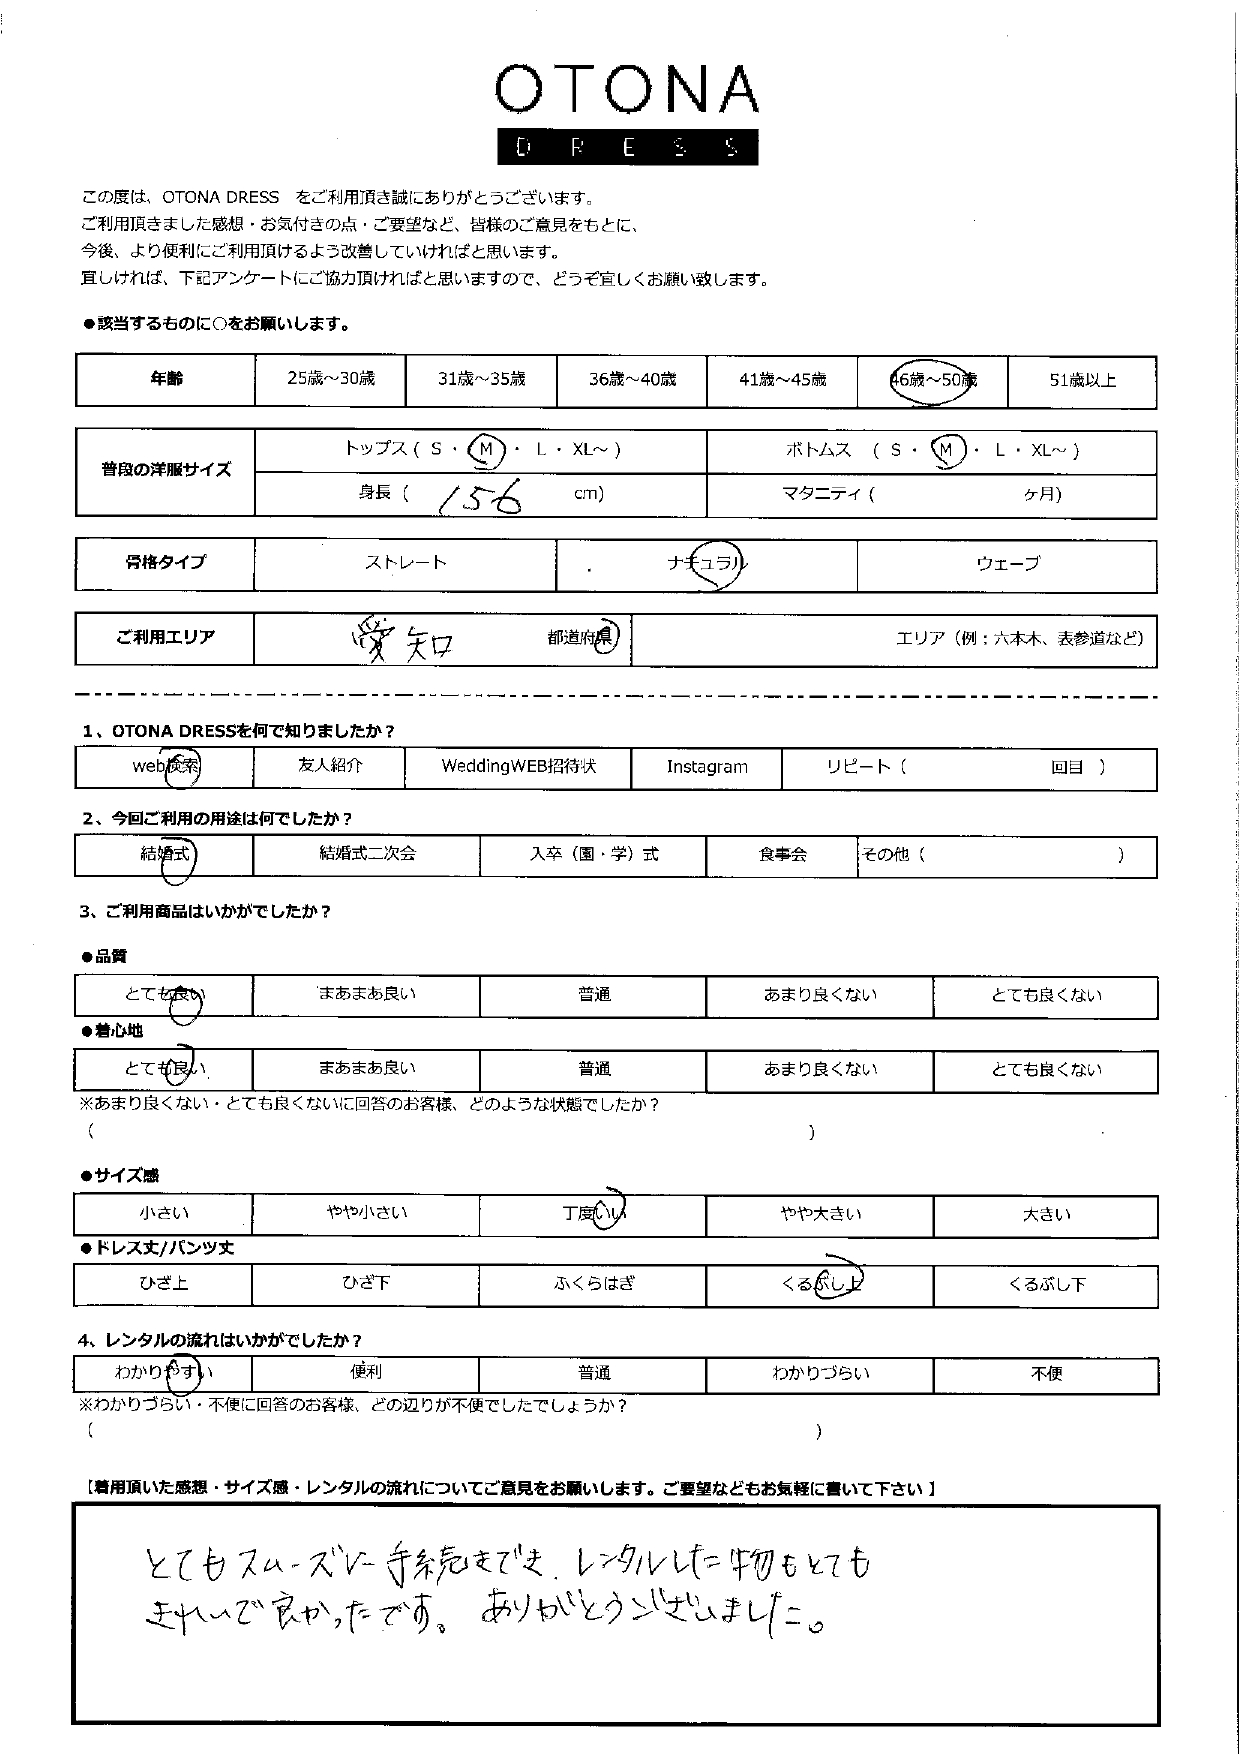 OTONA
DRESS
この度は、OTONA DRESS をご利用頂き誠にありがとうございます。
ご利用頂きました感想・お気付きの点・ご要望など、皆様のご意見をもとに、
今後、より便利にご利用頂けるよう改善していければと思います。
宜しければ、下記アンケートにご協力頂ければと思いますので、どうぞ宜しくお願い致します。
●該当するものに○をお願いします。
年齢 25歳～30歳 31歳～35歳 36歳～40歳 41歳～45歳 46歳～50歳 51歳以上
普段の洋服サイズ トップス ( S ・ M ・ L ・ XL～ ) ボトムス ( S ・ M ・ L ・ XL～ )
身長 ( 156 cm) マタニティ ( ケ月)
骨格タイプ ストレート ナチュラル ウェーブ
ご利用エリア 愛知 都道府県 エリア（例：六本木、表参道など）
1、OTONA DRESSを何で知りましたか？
web検索 友人紹介 WeddingWEB招待状 Instagram リピート（ 回目 ）
2、今回ご利用の用途は何でしたか？
結婚式 結婚式二次会 入卒（園・学）式 食事会 その他（ ）
3、ご利用商品はいかがでしたか？
●品質
とても良い まあまあ良い 普通 あまり良くない とても良くない
●着心地
とても良い まあまあ良い 普通 あまり良くない とても良くない
※あまり良くない・とても良くないに回答のお客様、どのような状態でしたか？
（ ）
●サイズ感
小さい やや小さい 丁度いい やや大きい 大きい
●ドレス丈/パンツ丈
ひざ上 ひざ下 ふくらはぎ くるぶし上 くるぶし下
4、レンタルの流れはいかがでしたか？
わかりやすい 便利 普通 わかりづらい 不便
※わかりづらい・不便に回答のお客様、どの辺りが不便でしたでしょうか？
（ ）
【着用頂いた感想・サイズ感・レンタルの流れについてご意見をお願いします。ご要望などもお気軽に書いて下さい 】
とてもスムーズに手続きでき、レンタルした物もとても
きれいで良かったです。ありがとうございました。